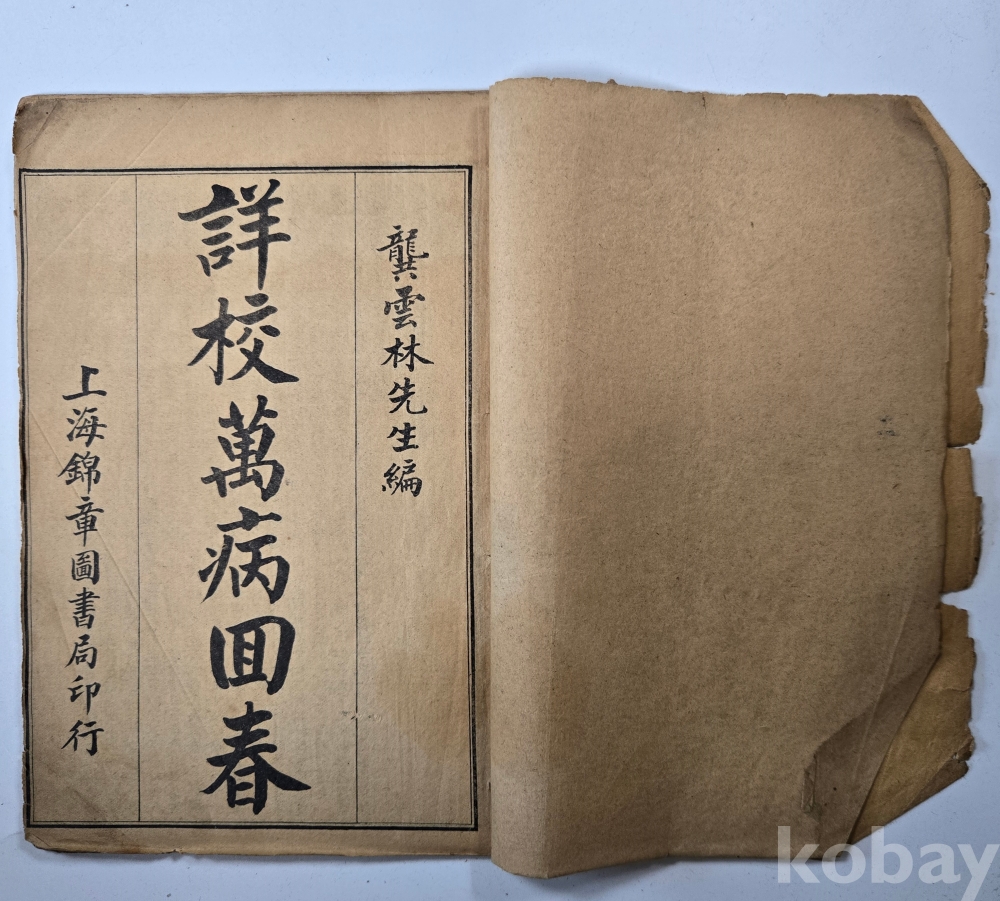 龔雲林先生編
詳校萬病囬春
上海錦章圖書局印行
kobay